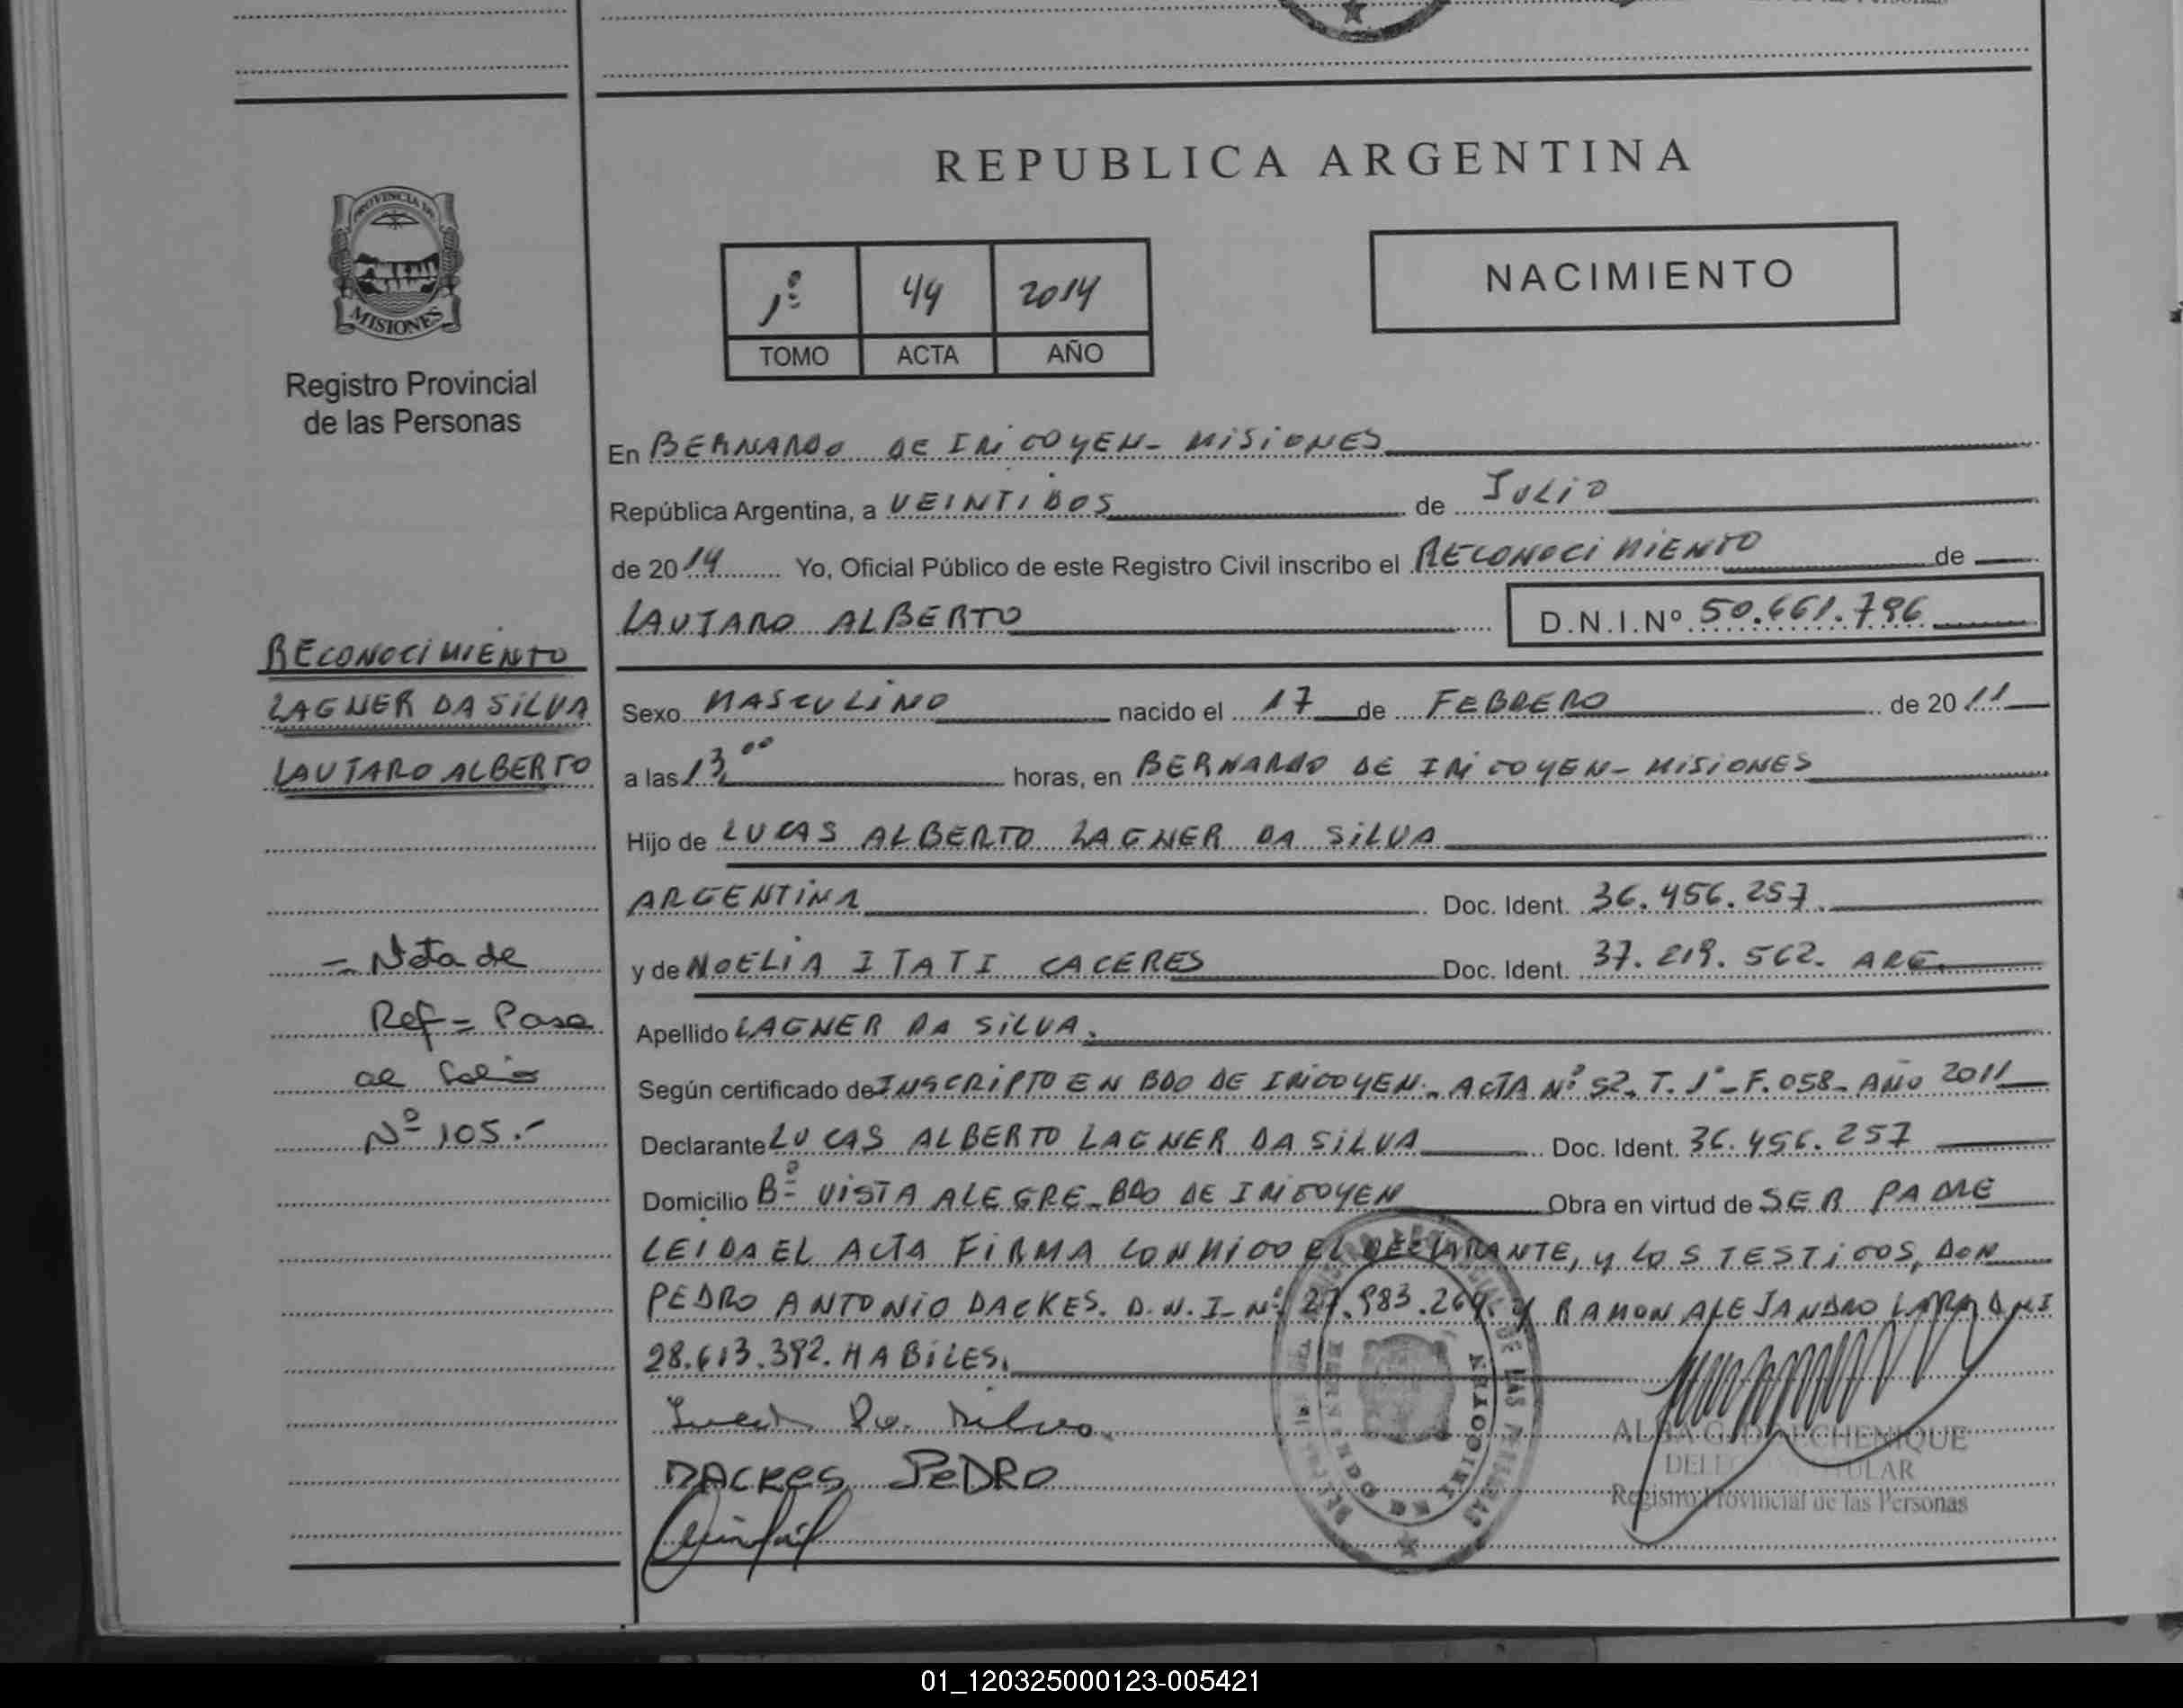 REPUBLICA ARGENTINA
PROVINCIA DE
MISIONES
Registro Provincial
de las Personas
1º 44 2014
TOMO ACTA AÑO
NACIMIENTO
En BERNARDO DE IRIGOYEN - MISIONES
República Argentina, a VEINTIDOS de JULIO
de 2014 Yo, Oficial Público de este Registro Civil inscribo el RECONOCIMIENTO de
LAUTARO ALBERTO D.N.I.Nº 50.661.796
RECONOCIMIENTO
LAGNER DA SILVA
LAUTARO ALBERTO
Sexo MASCULINO nacido el 17 de FEBRERO de 2011
a las 13,00 horas, en BERNARDO DE IRIGOYEN - MISIONES
Hijo de LUCAS ALBERTO LAGNER DA SILVA
ARGENTINA Doc. Ident. 36.456.257
y de NOELIA ITATI CACERES Doc. Ident. 37.219.562. ARG.
Apellido LAGNER DA SILVA.
Según certificado de INSCRIPTO EN BDO DE IRIGOYEN - ACTA Nº 52 - T. 1º - F. 058 - AÑO 2011
Declarante LUCAS ALBERTO LAGNER DA SILVA Doc. Ident. 36.456.257
Domicilio Bº VISTA ALEGRE - BDO DE IRIGOYEN Obra en virtud de SER PADRE
LEIDA EL ACTA FIRMA CONMIGO EL DECLARANTE, y LOS TESTIGOS, DON
PEDRO ANTONIO DACKES. D.N.I - Nº 27.983.264. y RAMON ALEJANDRO LARA DNI
28.613.392. HABILES.
- Nota de
Ref = Pasa
al folio
Nº 105.-
Da Silva
DACKES PEDRO
DE LAS PERSONAS
BERNARDO DE IRIGOYEN
ALBA G. CHENIQUE
TITULAR
Registro Provincial de las Personas
01_120325000123-005421